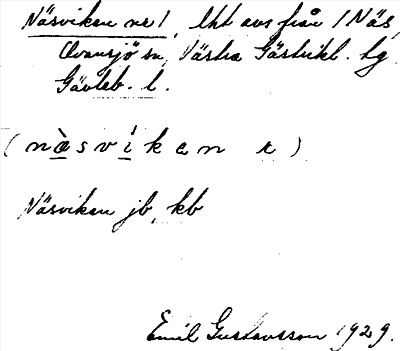 Näsviken nr 1, lht avs från 1 Näs,
Ovansjö sn, Västra Gästrikl. tg
Gävleb. l.
(nä̀svíken r)
Näsviken jb, kb
Emil Gustavsson 1929.